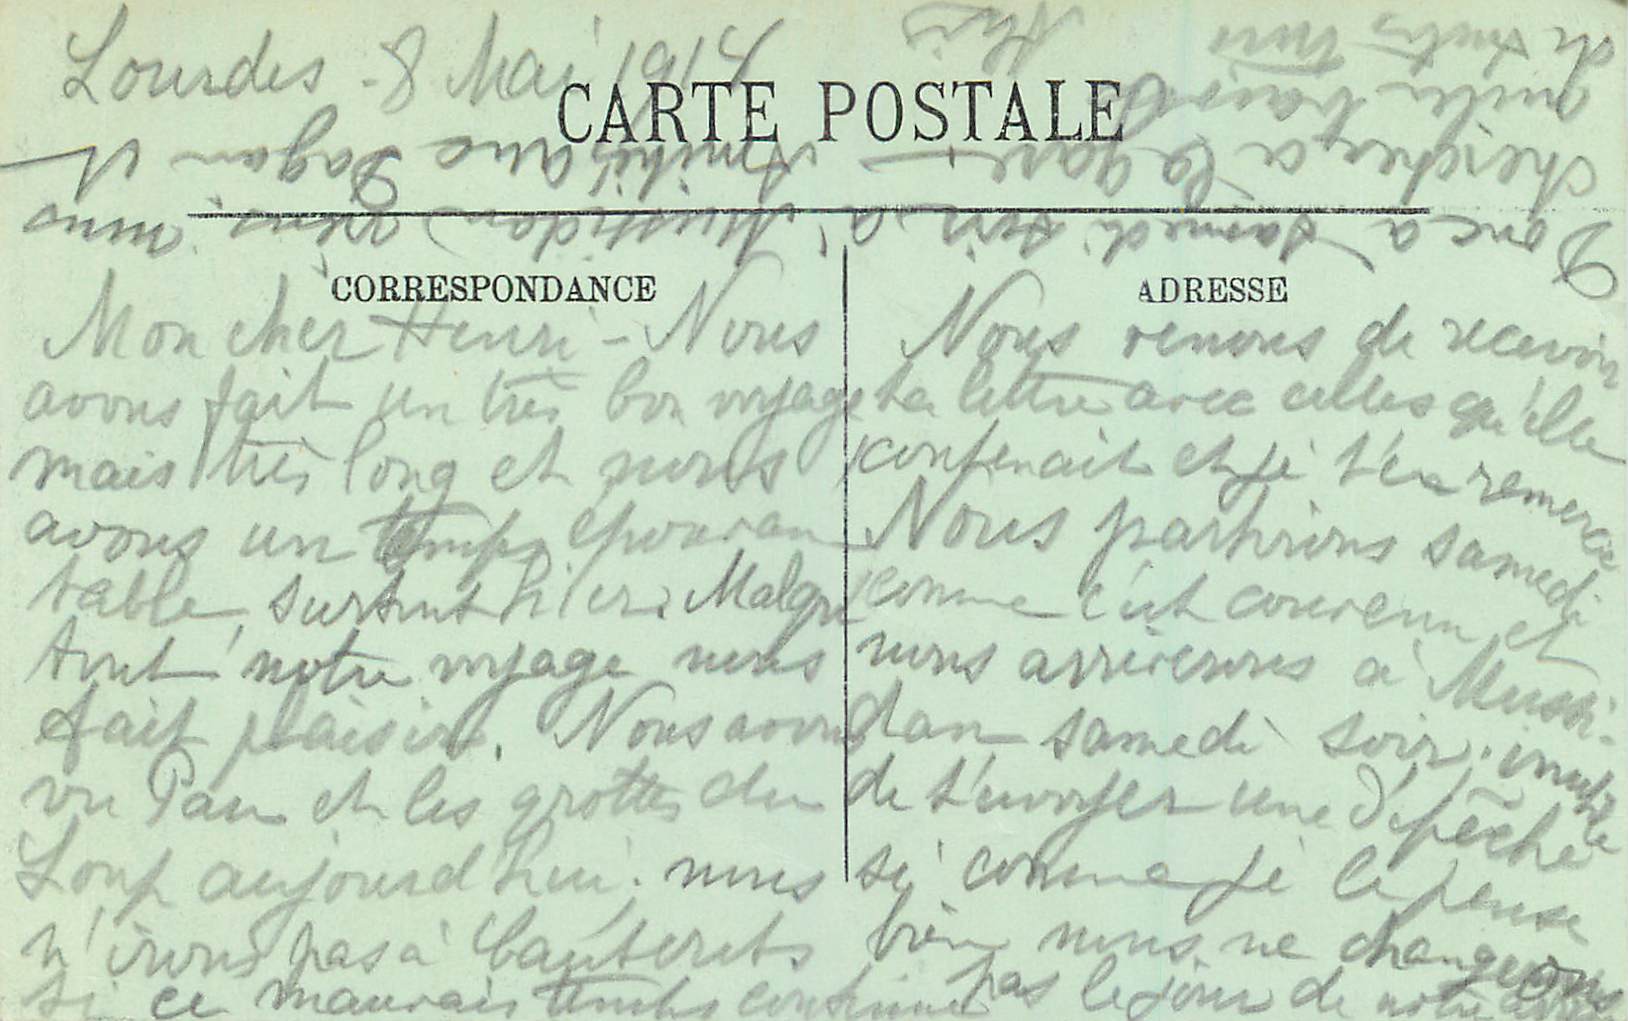 Lourdes - 8 Mai 1914
CARTE POSTALE
CORRESPONDANCE
Mon cher Henri - Nous
avons fait un très bon voyage
mais très long et nous
avons un temps épouvan
table, surtout hier. Malgré
tout notre voyage nous
fait plaisir. Nous avons
vu Pau et les grottes du
Loup aujourd'hui. nous
n'irons pas à Cauterets
si ce mauvais temps continue
ADRESSE
Nous venons de recevoir
ta lettre avec celles qu'elle
contenait et je t'en remercie
Nous partirons samedi
comme c'est convenu et
nous arriverons à Mussi-
dan samedi soir. inutile
de t'envoyer une dépêche
si comme je le pense
bien nous ne changeons
pas le jour de notre
Donc à samedi soir à Mussidan, viens nous
chercher à la gare. Amitiés aux Dagan et
amiter
de